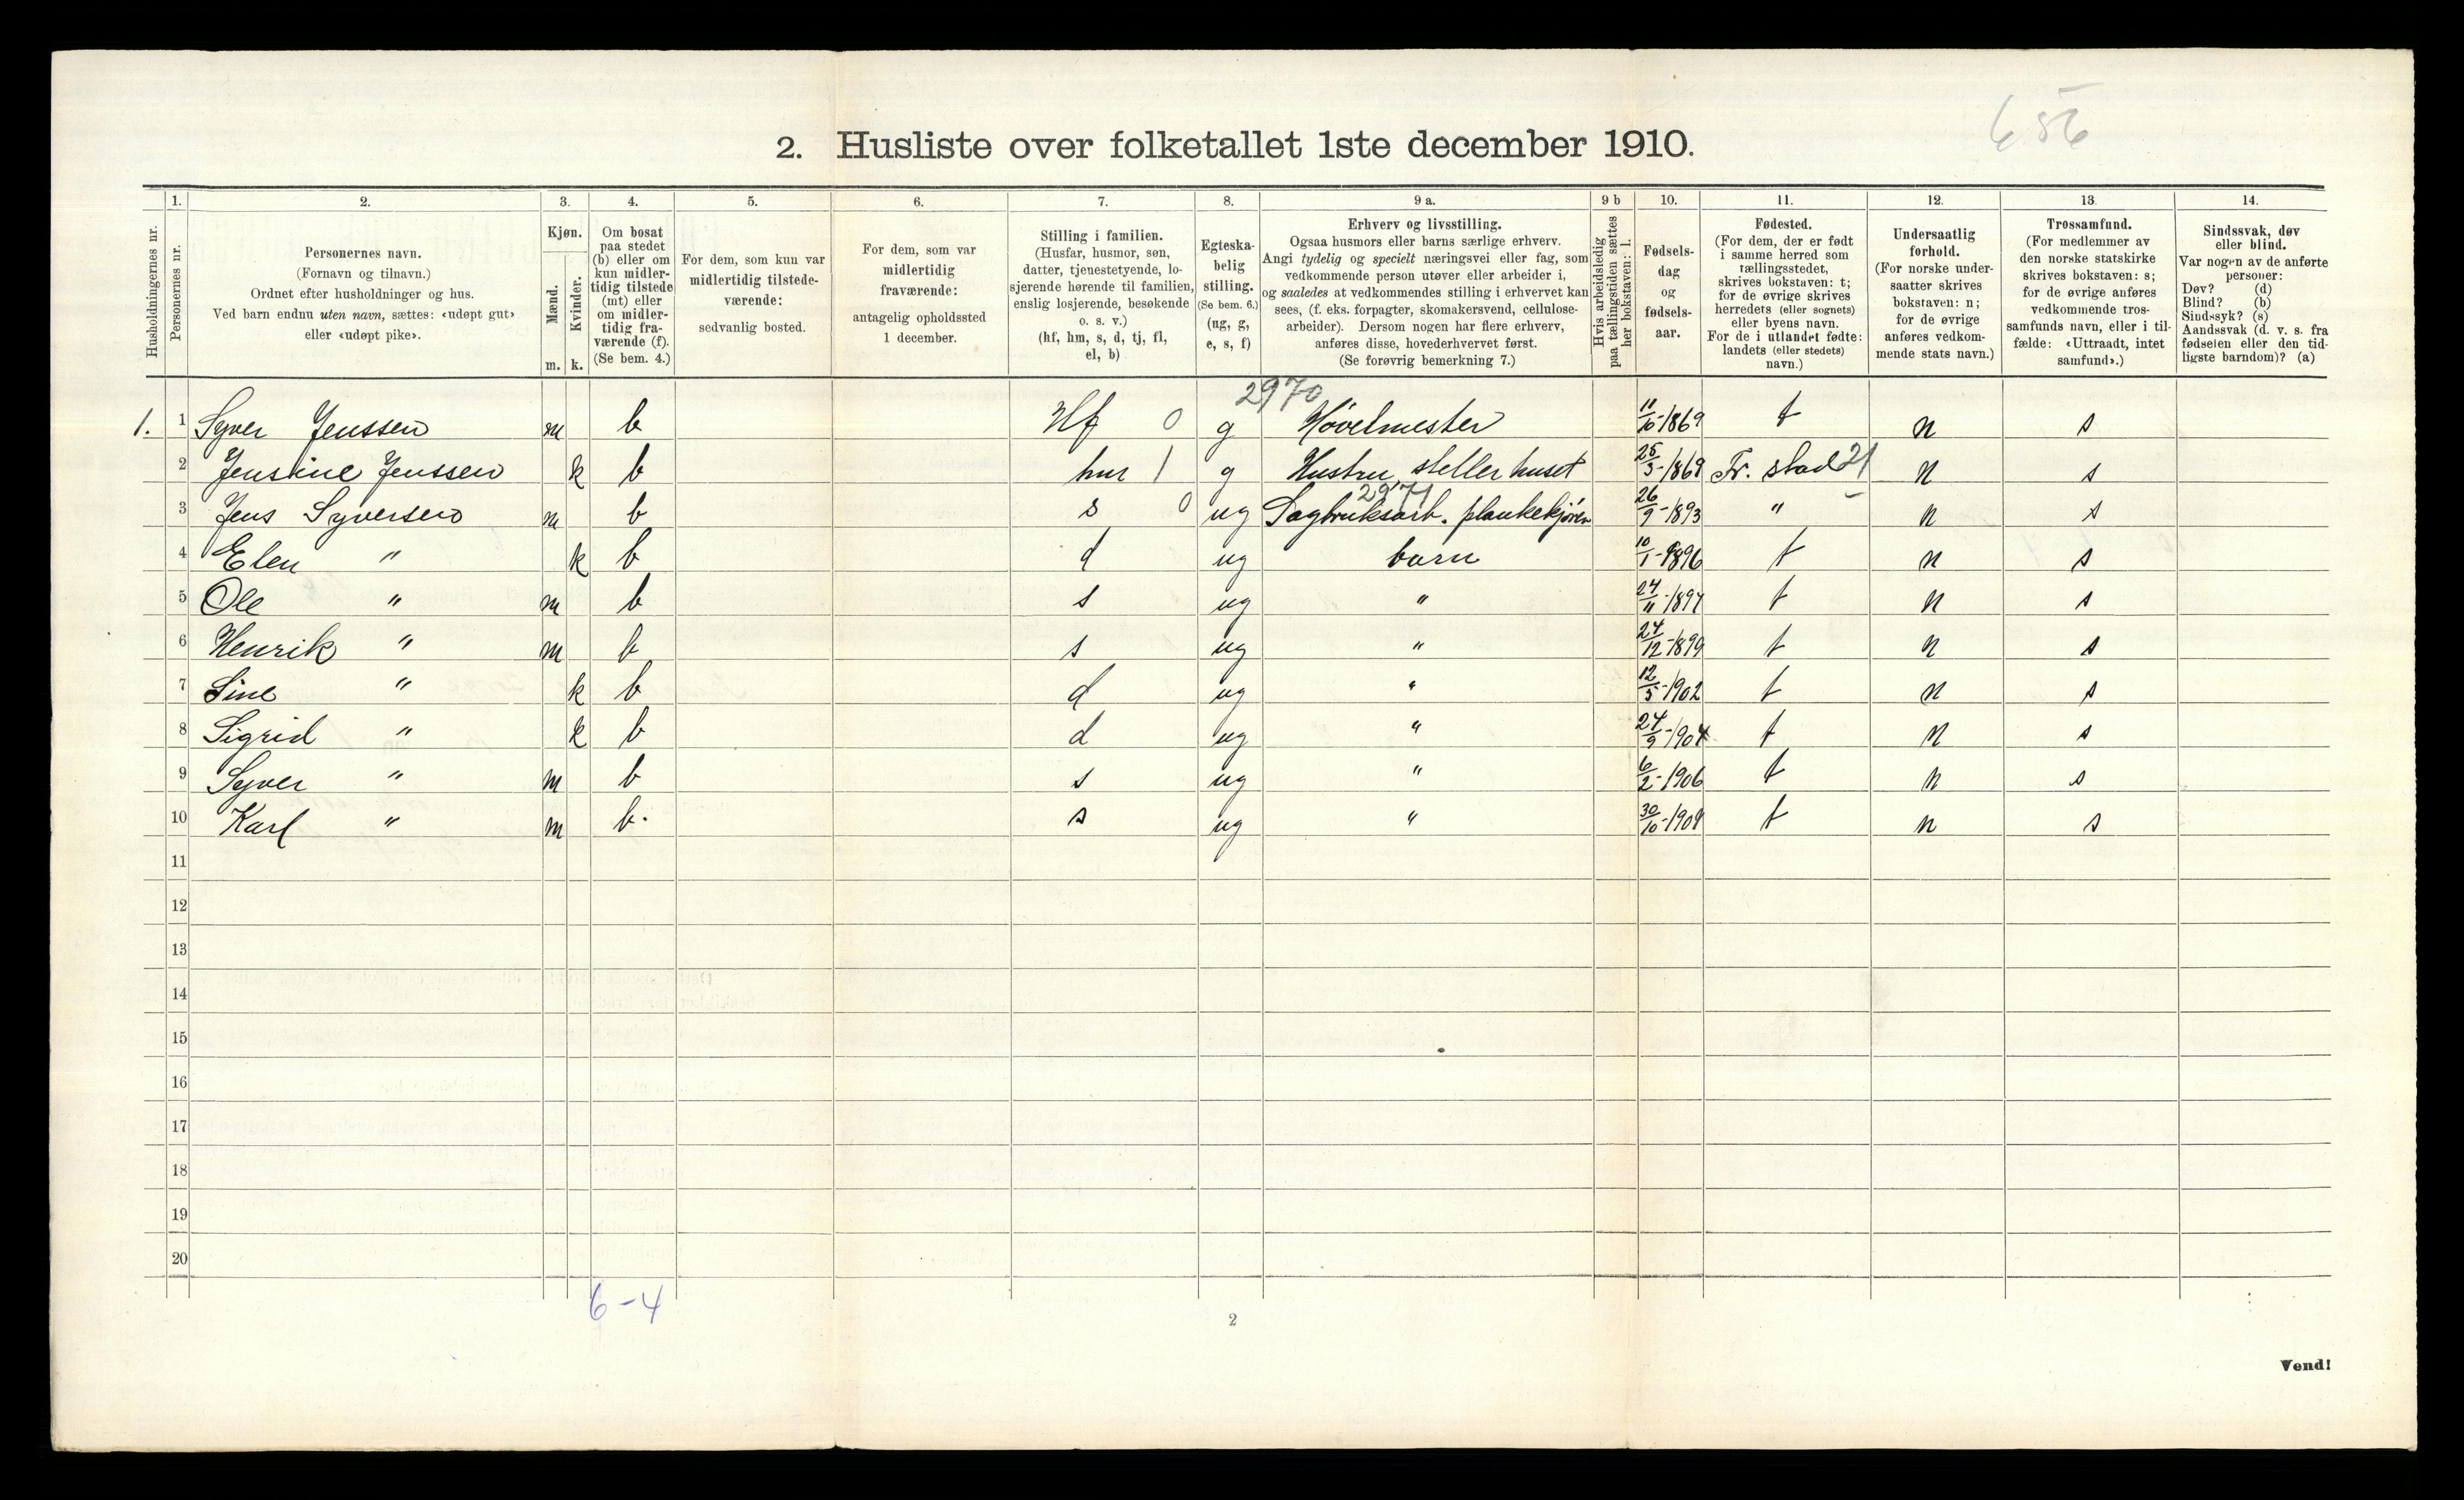 656
2. Husliste over folketallet 1ste december 1910.
1. 2. 3. 4. 5. 6. 7. 8. 9 a. 9 b 10. 11. 12. 13. 14.
Husholdningernes nr.
Personernes nr.
Personernes navn.
(Fornavn og tilnavn.)
Ordnet efter husholdninger og hus.
Ved barn endnu uten navn, sættes: «udøpt gut»
eller «udøpt pike».
Kjøn.
Mænd.
Kvinder.
m. k.
Om bosat
paa stedet
(b) eller om
kun midler-
tidig tilstede
(mt) eller
om midler-
tidig fra-
værende (f).
(Se bem. 4.)
For dem, som kun var
midlertidig tilstede-
værende:
sedvanlig bosted.
For dem, som var
midlertidig
fraværende:
antagelig opholdssted
1 december.
Stilling i familien.
(Husfar, husmor, søn,
datter, tjenestetyende, lo-
sjerende hørende til familien,
enslig losjerende, besøkende
o. s. v.)
(hf, hm, s, d, tj, fl,
el, b)
Egteska-
belig
stilling.
(Se bem. 6.)
(ug, g,
e, s, f)
Erhverv og livsstilling.
Ogsaa husmors eller barns særlige erhverv.
Angi tydelig og specielt næringsvei eller fag, som
vedkommende person utøver eller arbeider i,
og saaledes at vedkommendes stilling i erhvervet kan
sees, (f. eks. forpagter, skomakersvend, cellulose-
arbeider). Dersom nogen har flere erhverv,
anføres disse, hovederhvervet først.
(Se forøvrig bemerkning 7.)
Hvis arbeidsledig
paa tællingstiden sættes
her bokstaven: l.
Fødsels-
dag
og
fødsels-
aar.
Fødested.
(For dem, der er født
i samme herred som
tællingsstedet,
skrives bokstaven: t;
for de øvrige skrives
herredets (eller sognets)
eller byens navn.
For de i utlandet fødte:
landets (eller stedets)
navn.)
Undersaatlig
forhold.
(For norske under-
saatter skrives
bokstaven: n;
for de øvrige
anføres vedkom-
mende stats navn.)
Trossamfund.
(For medlemmer av
den norske statskirke
skrives bokstaven: s;
for de øvrige anføres
vedkommende tros-
samfunds navn, eller i til-
fælde: «Uttraadt, intet
samfund».)
Sindssvak, døv
eller blind.
Var nogen av de anførte
personer:
Døv? (d)
Blind? (b)
Sindssyk? (s)
Aandssvak (d. v. s. fra
fødselen eller den tid-
ligste barndom)? (a)
2970
1. 1 Syver Jenssen m b Hf 0 g Høvelmester 11/10-1869 t n s
2 Jensine Jenssen k b hm 1 g Hustru, steller huset 25/3-1869 Fr. stad 21 n s
2971
3 Jens Syversen m b s 0 ug Sagbruksarb. plankekjører 26/9-1893 " n s
4 Elen " k b d ug barn 10/1-1896 t n s
5 Ole " m b s ug " 24/11-1897 t n s
6 Henrik " m b s ug " 24/12-1899 t n s
7 Sine " k b d ug " 12/5-1902 t n s
8 Sigrid " k b d ug " 24/9-1904 t n s
9 Syver " m b s ug " 6/2-1906 t n s
10 Karl " m b. s ug " 30/10-1909 t n s
11
12
13
14
15
16
17
18
19
20
6-4
2
Vend!